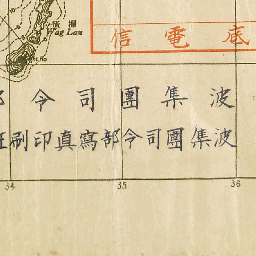 橫瀾
Wag Lau
信電底
部令司團集波
班刷印真寫部令司團集波
34 35 36